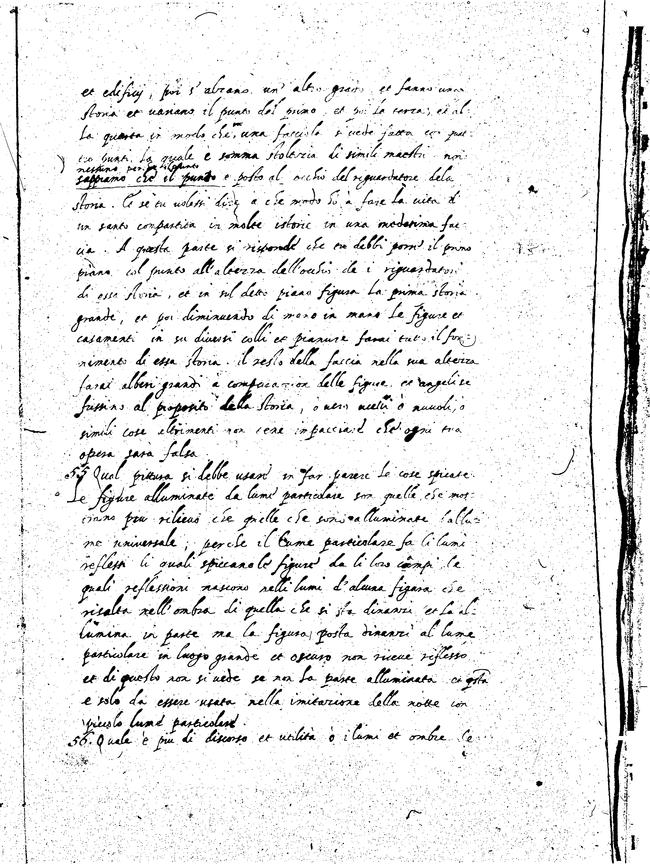 et edifitij, poi s'alzano un altro grado et fanno una
storia et variano il punto dal primo, et poi la terza, et al
la quarta in modo che una facciata si vede fatta con quat
tro punti. La quale è somma stoltezia di simili maestri. noi
sappiamo che il punto è posto al occhio del riguardatore dela
storia. Et se tu volessi dire a che modo hò a fare la vita d
un santo compartita in molte istorie in una medesima fac
cia. A questa parte si risponde che tu debbi porre il primo
piano col punto all'altezza dell'occhio de i riguardatori
di esse storia, et in sul detto piano figura la prima storia
grande, et poi diminuendo di mano in mano le figure et
casamenti in su diversi colli et pianure farai tutto il for
nimento di essa storia. il resto della faccia nella sua altezza
farai alberi grandi a comparazion delle figure, et angeli se
fussino al proposito della storia, o vero uccelli ò nuvoli, o
simili cose altrimenti non
opera sarà falsa.
55 Qual pittura si debbe usare in far parere le cose spicate
Le figure alluminate da lume particolare son quelle che mos
trano piu rilievo che quelle che sono alluminate
me universale, perche il lume particolare fa li lumi
reflessi li quali spiccano le figure da li loro campi. le
quali reflessioni nascono nelli lumi d'aluna figura che
risalta nell'ombra di quella che si sta dinanzi et la al
lumina in parte ma la figura posta dinanzi al lume
particolare in luogo grande et oscuro non riceve riflesso
et di questo non si vede se non la parte alluminata et qsta
e solo da essere usata nella imitazione della notte con
picciolo lume particolare.
56. Quale è piu di discorso et utilità ò i lumi et ombre le